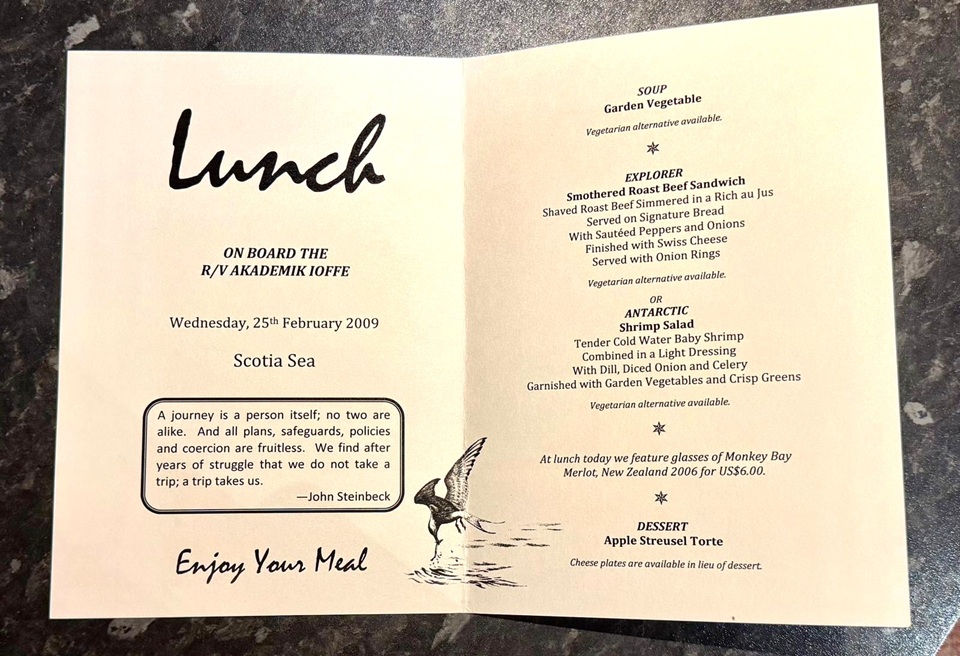 Lunch
ON BOARD THE
R/V AKADEMIK IOFFE
Wednesday, 25th February 2009
Scotia Sea
A journey is a person itself; no two are
alike. And all plans, safeguards, policies
and coercion are fruitless. We find after
years of struggle that we do not take a
trip; a trip takes us.
—John Steinbeck
Enjoy Your Meal
SOUP
Garden Vegetable
Vegetarian alternative available.
EXPLORER
Smothered Roast Beef Sandwich
Shaved Roast Beef Simmered in a Rich au Jus
Served on Signature Bread
With Sautéed Peppers and Onions
Finished with Swiss Cheese
Served with Onion Rings
Vegetarian alternative available.
OR
ANTARCTIC
Shrimp Salad
Tender Cold Water Baby Shrimp
Combined in a Light Dressing
With Dill, Diced Onion and Celery
Garnished with Garden Vegetables and Crisp Greens
Vegetarian alternative available.
At lunch today we feature glasses of Monkey Bay
Merlot, New Zealand 2006 for US$6.00.
DESSERT
Apple Streusel Torte
Cheese plates are available in lieu of dessert.